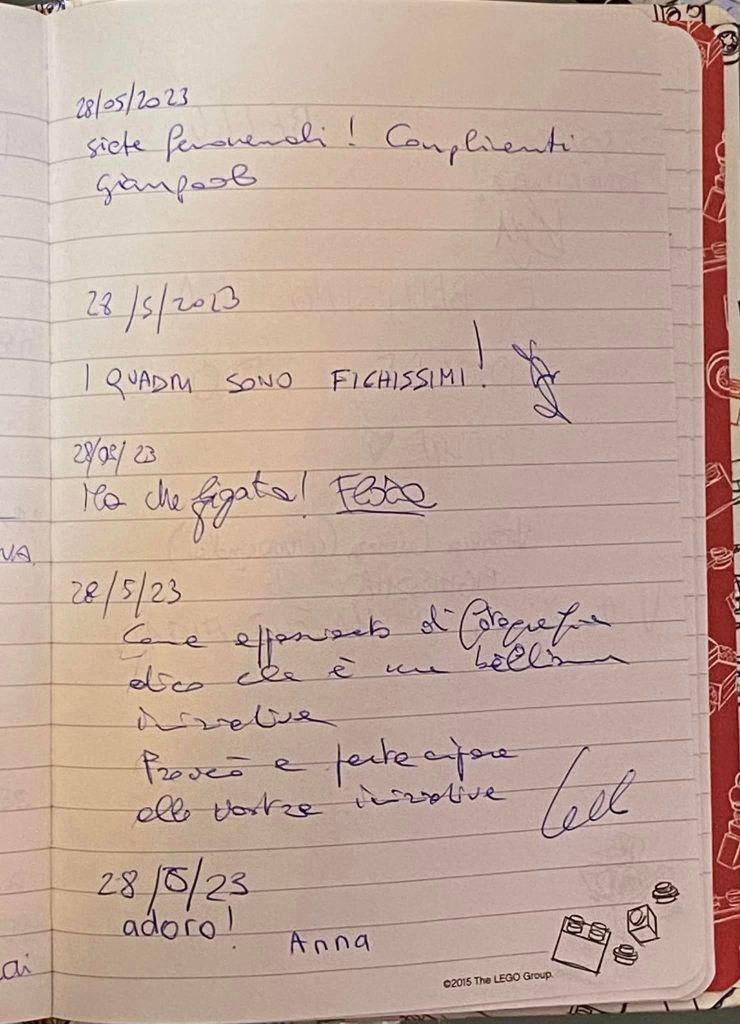 28/05/2023
siete fenomenali! Complimenti
Gianpaolo
28/5/2023
I QUADRI SONO FICHISSIMI!
28/05/23
Ma che figata!
28/5/23
Come appassionato di fotografia
dico che è una bellissima
iniziativa
Proverò a partecipare
alle vostre iniziative
28/5/23
adoro!
Anna
©2015 The LEGO Group.